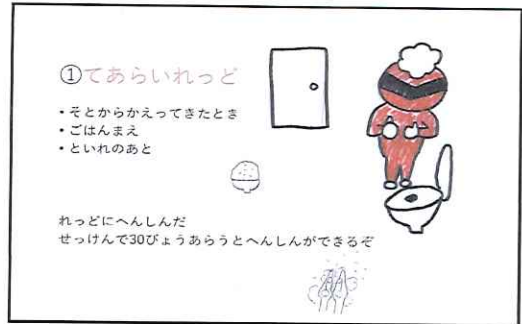 ①てあらいれっど
・そとからかえってきたとき
・ごはんまえ
・といれのあと
れっどにへんしんだ
せっけんで30びょうあらうとへんしんができるぞ